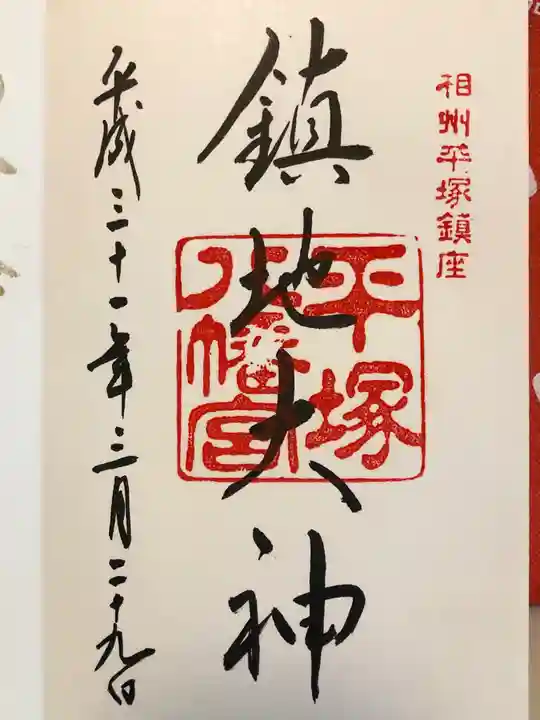 相州平塚鎮座
鎮地大神
平塚
八幡宮
平成三十一年三月二十九日